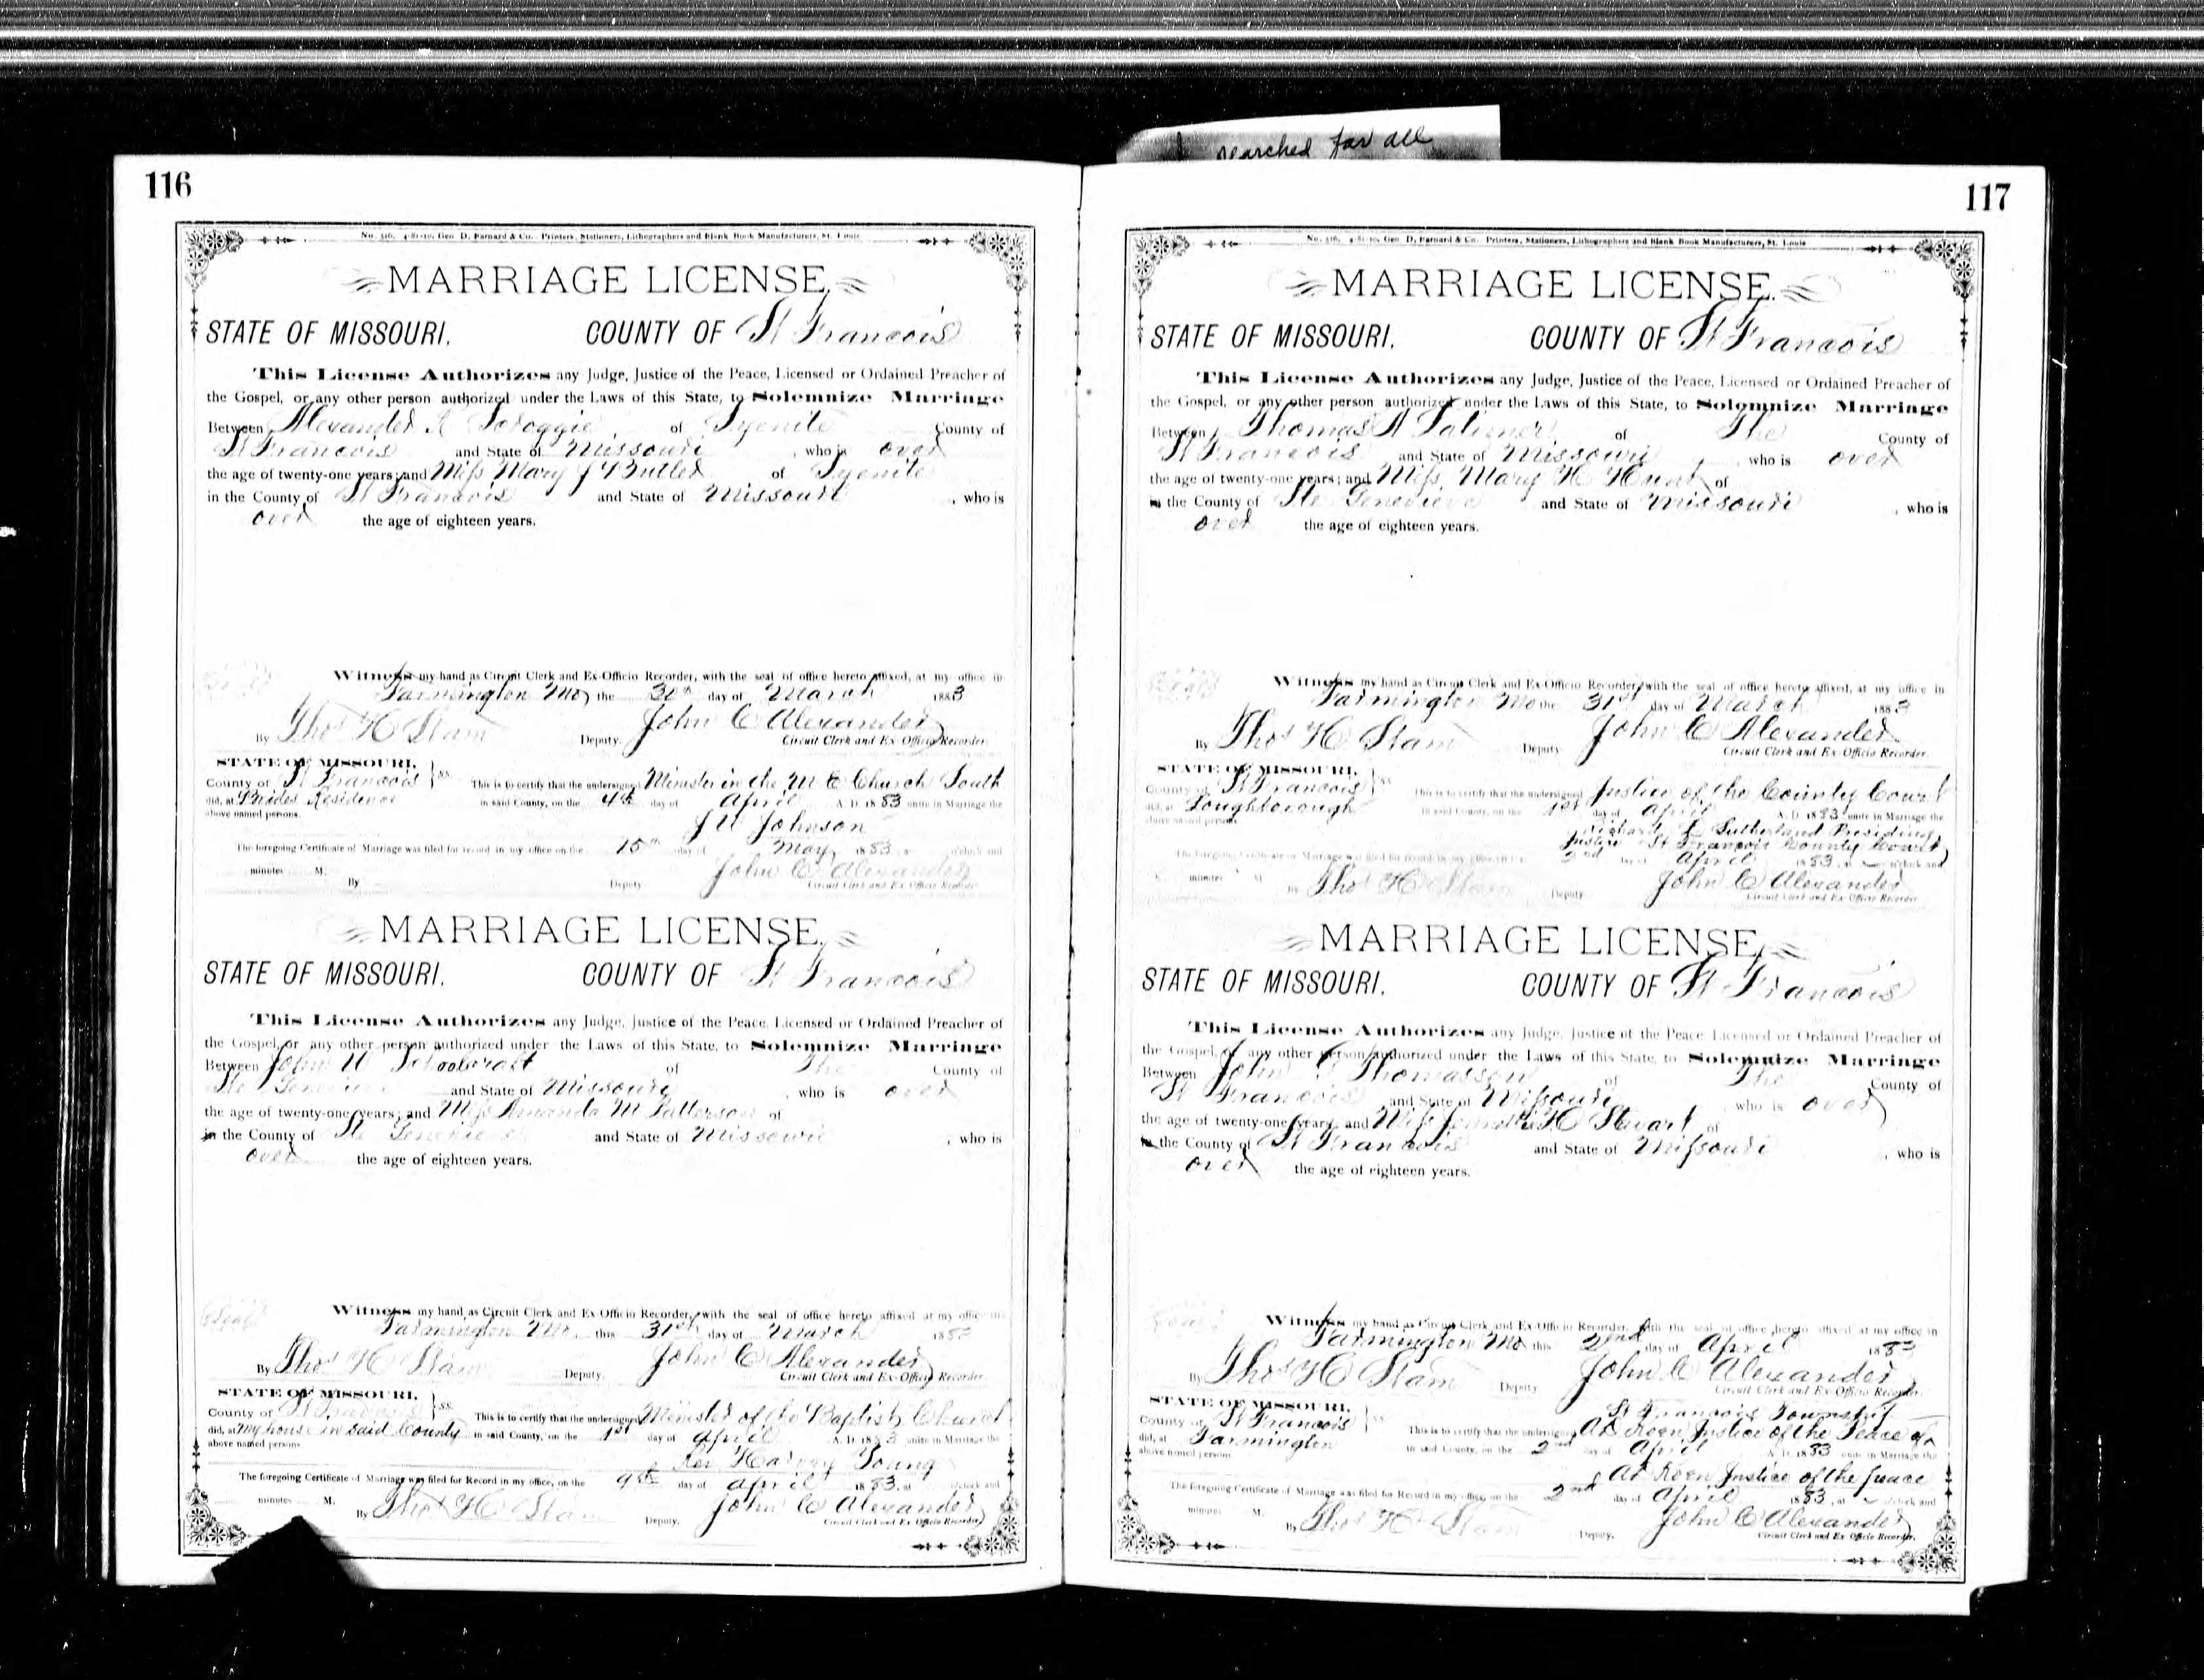 searched for all
116
No. 316, 4-81-10, Geo. D. Barnard & Co. Printers, Stationers, Lithographers and Blank Book Manufacturers, St. Louis
MARRIAGE LICENSE.
STATE OF MISSOURI. COUNTY OF St Francois
This License Authorizes any Judge, Justice of the Peace, Licensed or Ordained Preacher of
the Gospel, or any other person authorized under the Laws of this State, to Solemnize Marriage
Between Alexander R Scroggie of Syenite County of
St Francois and State of Missouri, who is over
the age of twenty-one years; and Miss Mary J Butler of Syenite
in the County of St Francois and State of Missouri, who is
over the age of eighteen years.
Witness my hand as Circuit Clerk and Ex-Officio Recorder, with the seal of office hereto affixed, at my office in
Farmington Mo, the 30th day of March 1883
By Thos H Stam Deputy. John C Alexander
Circuit Clerk and Ex-Officio Recorder.
STATE OF MISSOURI,
County of St Francois ss. This is to certify that the undersigned Minister in the M E Church South
did, at Brides Residence in said County, on the 4th day of April A. D. 1883 unite in Marriage the
above named persons.
J W Johnson
The foregoing Certificate of Marriage was filed for record in my office on the 15th day of May, 1883, at o'clock and
minutes M. John C Alexander
By Deputy Circuit Clerk and Ex-Officio Recorder
MARRIAGE LICENSE.
STATE OF MISSOURI. COUNTY OF St Francois
This License Authorizes any Judge, Justice of the Peace, Licensed or Ordained Preacher of
the Gospel, or any other person authorized under the Laws of this State, to Solemnize Marriage
Between John W Schoolcraft of The County of
Ste Genevieve and State of Missouri, who is over
the age of twenty-one years; and Miss Amanda M Patterson of
in the County of Ste Genevieve and State of Missouri, who is
over the age of eighteen years.
Witness my hand as Circuit Clerk and Ex-Officio Recorder, with the seal of office hereto affixed at my office in
Farmington Mo. this 31st day of March 1883
By Thos H Stam Deputy. John C Alexander
Circuit Clerk and Ex-Officio Recorder
STATE OF MISSOURI,
County of St Francois ss. This is to certify that the undersigned Minister of the Baptist Church
did, at My house in said County in said County, on the 1st day of April A. D. 1883 unite in Marriage the
above named persons
Rev Harvey Young
The foregoing Certificate of Marriage was filed for Record in my office, on the 9th day of April 1883, at o'clock and
minutes M. By Thos H Stam Deputy. John C Alexander
Circuit Clerk and Ex-Officio Recorder
117
No. 316, 4-81-10, Geo. D. Barnard & Co. Printers, Stationers, Lithographers and Blank Book Manufacturers, St. Louis
MARRIAGE LICENSE.
STATE OF MISSOURI. COUNTY OF St Francois
This License Authorizes any Judge, Justice of the Peace, Licensed or Ordained Preacher of
the Gospel, or any other person authorized under the Laws of this State, to Solemnize Marriage
Between Thomas A of The County of
St Francois and State of Missouri, who is over
the age of twenty-one years; and Miss Mary H Hunt of
in the County of Ste Genevieve and State of Missouri, who is
over the age of eighteen years.
Witness my hand as Circuit Clerk and Ex-Officio Recorder, with the seal of office hereto affixed, at my office in
Farmington Mo the 31st day of March 1883
By Thos H Stam Deputy John C Alexander
Circuit Clerk and Ex-Officio Recorder.
STATE OF MISSOURI,
County of St Francois ss This is to certify that the undersigned Justice of the County Court
did, at Loughborough in said County, on the 1st day of April A. D. 1883 unite in Marriage the
above named persons.
Richard L Sutherland Presiding
Justice St Francois County Court
The foregoing Certificate of Marriage was filed for record in my office on the 2nd day of April 1883, at o'clock and
minutes M By Thos H Stam Deputy John C Alexander
Circuit Clerk and Ex-Officio Recorder
MARRIAGE LICENSE.
STATE OF MISSOURI. COUNTY OF St Francois
This License Authorizes any Judge, Justice of the Peace Licensed or Ordained Preacher of
the Gospel, or any other person authorized under the Laws of this State, to Solemnize Marriage
Between John Thomasson of The County of
St Francois and State of Missouri who is over
the age of twenty-one years, and Miss H Stewart of
in the County of St Francois and State of Missouri, who is
over the age of eighteen years.
Witness my hand as Circuit Clerk and Ex-Officio Recorder, with the seal of office hereto affixed at my office in
Farmington Mo this 2nd day of April 1883
By Thos H Stam Deputy John C Alexander
Circuit Clerk and Ex-Officio Recorder
STATE OF MISSOURI, St Francois Township
County of St Francois ss This is to certify that the undersigned Justice of the Peace of
did, at Farmington in said County, on the 2nd day of April A. D. 1883 unite in Marriage the
above named persons
Justice of the peace
The foregoing Certificate of Marriage was filed for Record in my office, on the 2nd day of April 1883, at o'clock and
minutes M. By Thos H Stam Deputy. John C Alexander
Circuit Clerk and Ex Officio Recorder.